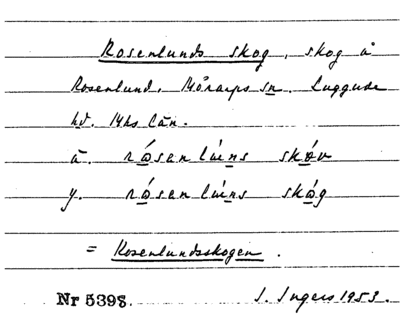 Rosenlunds skog, skog å
Rosenlund, Mörarps sn. Luggude
hd. Mhs län.
ä. rósen lúns skóv
y. rósen lúns skóg
= Rosenlundsskogen.
Nr 5398. I. Ingers 1953.